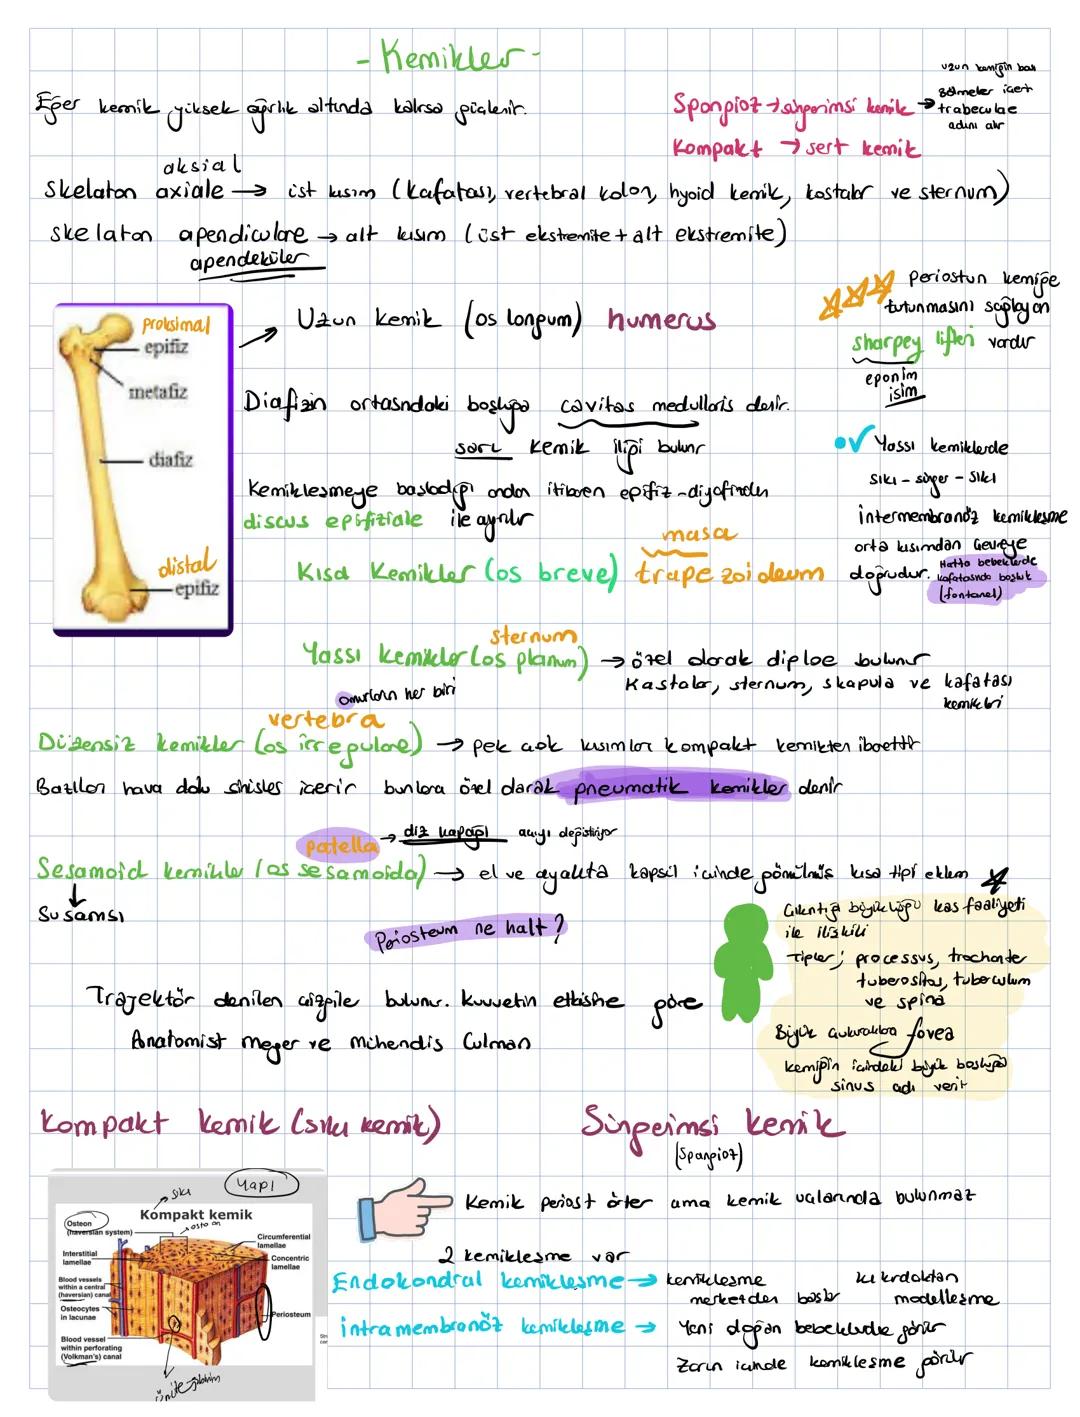 - Kemikler -
Eğer kemik yüksek ağırlık altında kalırsa güçlenir.
Spongioz → süngerimsi kemik →
uzun kemiğin baş
Bölmeler içerir
trabeculae
adını alır
Kompakt → sert kemik
aksial
Skelaton axiale → üst kısım (Kafatası, vertebral kolon, hyoid kemik, kostalar ve sternum)
skelaton apendiculare → alt kısım (üst ekstremite + alt ekstremite)
apendeküler
periostun kemiğe
tutunmasını sağlayan
sharpey lifleri vardır
eponim
isim
proksimal
epifiz
metafiz
diafiz
distal
epifiz
Uzun kemik (os longum) humerus
Diafizin ortasındaki boşluğa cavitas medullaris denir.
sarı kemik iliği bulunur
Kemikleşmeye başladığı andan itibaren epifiz - diyafizden
discus epifiziale ile ayrılır
Yassı kemiklerde
sıkı - sünger - sıkı
intermembranöz kemikleşme
orta kısımdan çevreye
doğrudur. Hatta bebeklerde
kafatasında boşluk
(fontanel)
masa
Kısa Kemikler (os breve) trapezoideum
sternum
Yassı kemikler (os planum) → özel olarak diploe bulunur
Kastalar, sternum, skapula ve kafatası
kemikleri
omurların her biri
vertebra
Düzensiz kemikler (os irregulare) → pek çok kısımları kompakt kemikten ibarettir
Bazıları hava dolu sinüsler içerir bunlara özel olarak pneumatik kemikler denir
patella → diz kapağı açıyı değiştiriyor
Sesamoid kemikler (os sesamoida) → el ve ayakta kapsül içinde gömülmüş kısa tipli eklem
Susamsı
Periosteum ne halt?
Çıkıntığı büyüklüğü kas faaliyeti
ile ilişkili
Tipler; processus, trochanter
tuberositas, tuberculum
ve spina
Büyük çukurlukları fovea
kemiğin içindeki büyük boşluğa
sinus adı verir
Trajektör denilen çizgiler bulunur. Kuvvetin etkisine göre
Anatomist meyer ve mühendis Culman
Kompakt kemik (sıkı kemik)
Süngerimsi kemik
(Spangioz)
Yapı
sıkı
Kompakt kemik
osteon
Osteon
(haversian system)
Interstitial
lamellae
Blood vessels
within a central
(haversian) canal
Osteocytes
in lacunae
Blood vessel
within perforating
(Volkman's) canal
Circumferential
lamellae
Concentric
lamellae
Periosteum
Kemik periost örter ama kemik uçlarında bulunmaz
2 kemikleşme var
Endokondral kemikleşme → kemikleşme kıkırdaktan
merkezden başlar modelleşme
intramembranöz kemikleşme → Yeni doğan bebeklerde görülür
Zarın içinde kemikleşme görülür